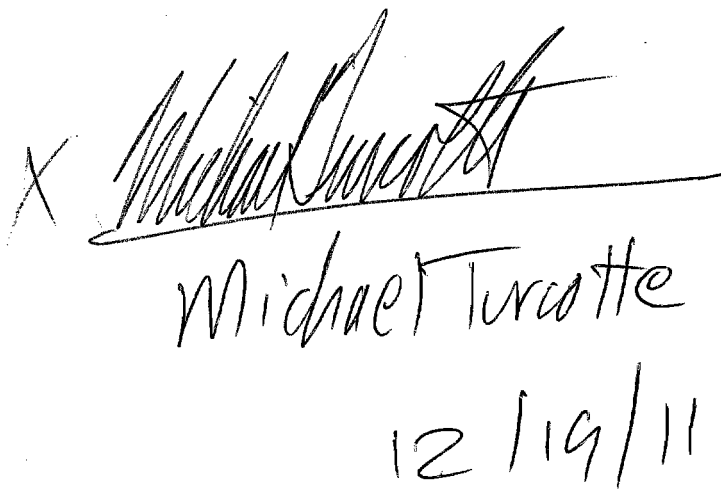 X Michael Turcotte
Michael Turcotte
12/19/11